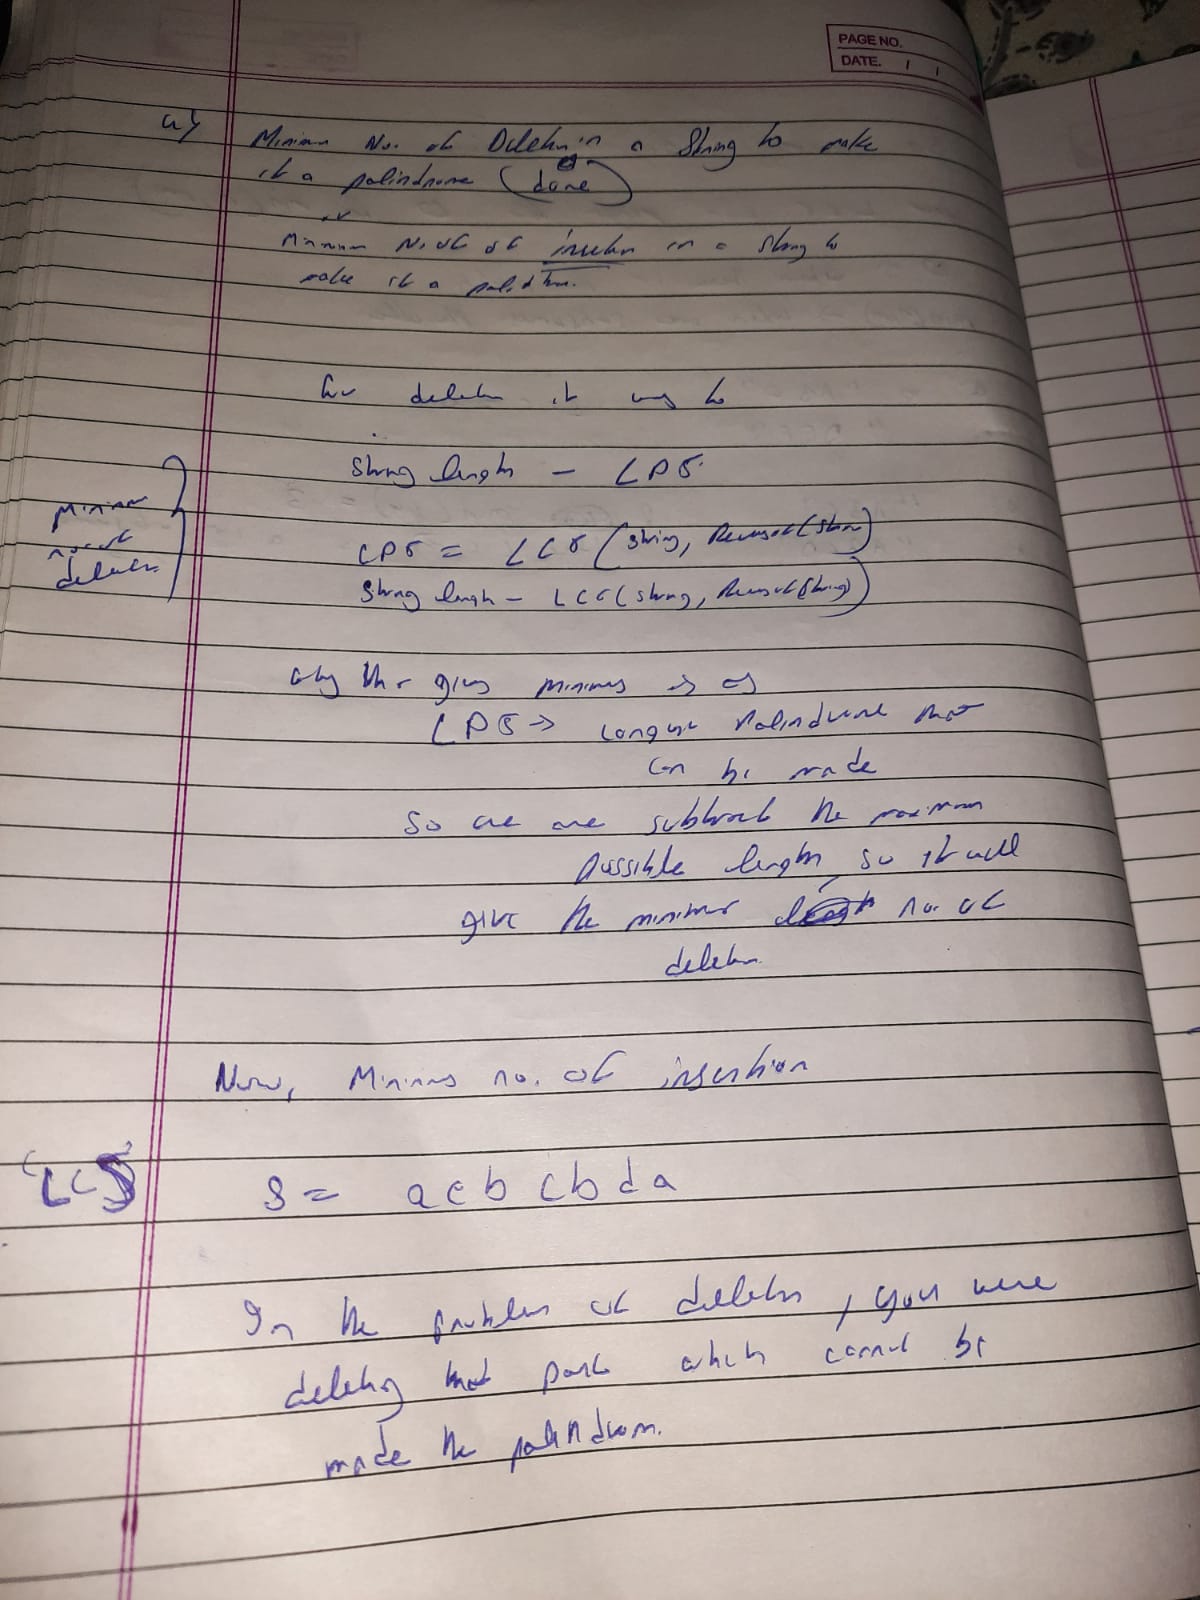 PAGE NO.
DATE. / /
a) Minimum No. of Deletion in a String to make
it a palindrome (done)
or
Minimum No. of of insertion in a string to
make it a palindrome.
for deletion it was to
String length - LPS
Minimum
no. of
deletion
LPS = LCS (string, Reverse(string)
String length - LCS (string, Reverse(string))
why this gives minimum is as
LPS → Longest Palindrome that
can be made
So we are subtract the maximum
possible length, so it will
give the minimum no. of
deletion.
Now, Minimum no. of insertion
'LCS'
S = acbcbda
In the problem of deletion, you were
deleting that part which cannot be
made the palindrom.